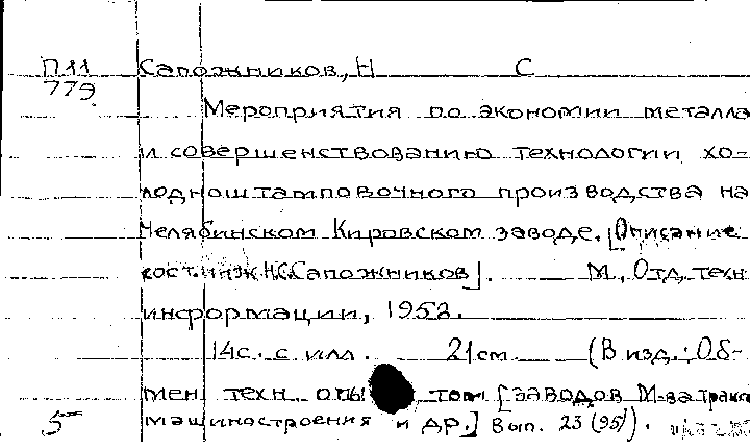 П11 Сапожников, Н С
779
Мероприятия по экономии металла
и совершенствованию технологии хо-
лодноштамповочного производства на
Челябинском Кировском заводе. [Описание
сост. инж. Н.С.Сапожников]. М., Отд. техн
информации, 1952.
14с. с илл. 21см (В изд.: Об-
мен техн. опы том [заводов М-ва тракт
5 машиностроения и др.] Вып. 23 (95)).